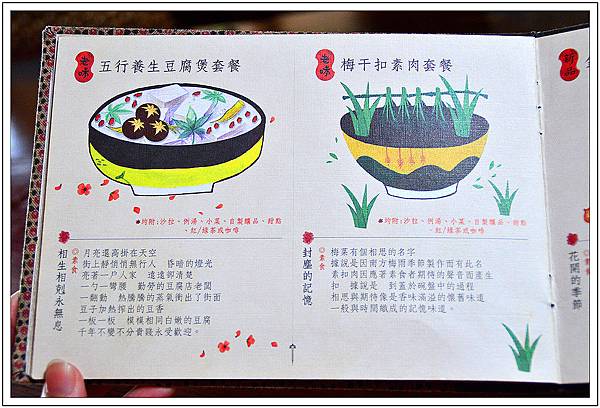 老味
五行養生豆腐煲套餐
*均附:沙拉、例湯、小菜、自製麵品、甜點、
紅/綠茶或咖啡
相生相剋永無息
◎素食
月亮還高掛在天空
街上靜悄悄無行人 昏暗的燈光
亮著一戶人家 遠遠卻清楚
一勺一彎腰 勤勞的豆腐店老闆
一翻動 熱騰騰的蒸氣衝出了街面
豆子加熱捧出的豆香
一板一板 模模相同白嫩的豆腐
千年不變不分貴賤永受歡迎。
老味
梅干扣素肉套餐
*均附:沙拉、例湯、小菜、自製麵品、甜點
、紅/綠茶或咖啡
封塵的記憶
◎素食
梅菜有個相思的名字
據說是因南方梅雨季節製作而有此名
素扣肉因應著素食者期待的聲音而產生
扣 據說是 到蓋於碗盤中的過程
相思與期待像是香味滿溢的懷舊味道
一般與時間織成的記憶味道。
新品
花開的季節